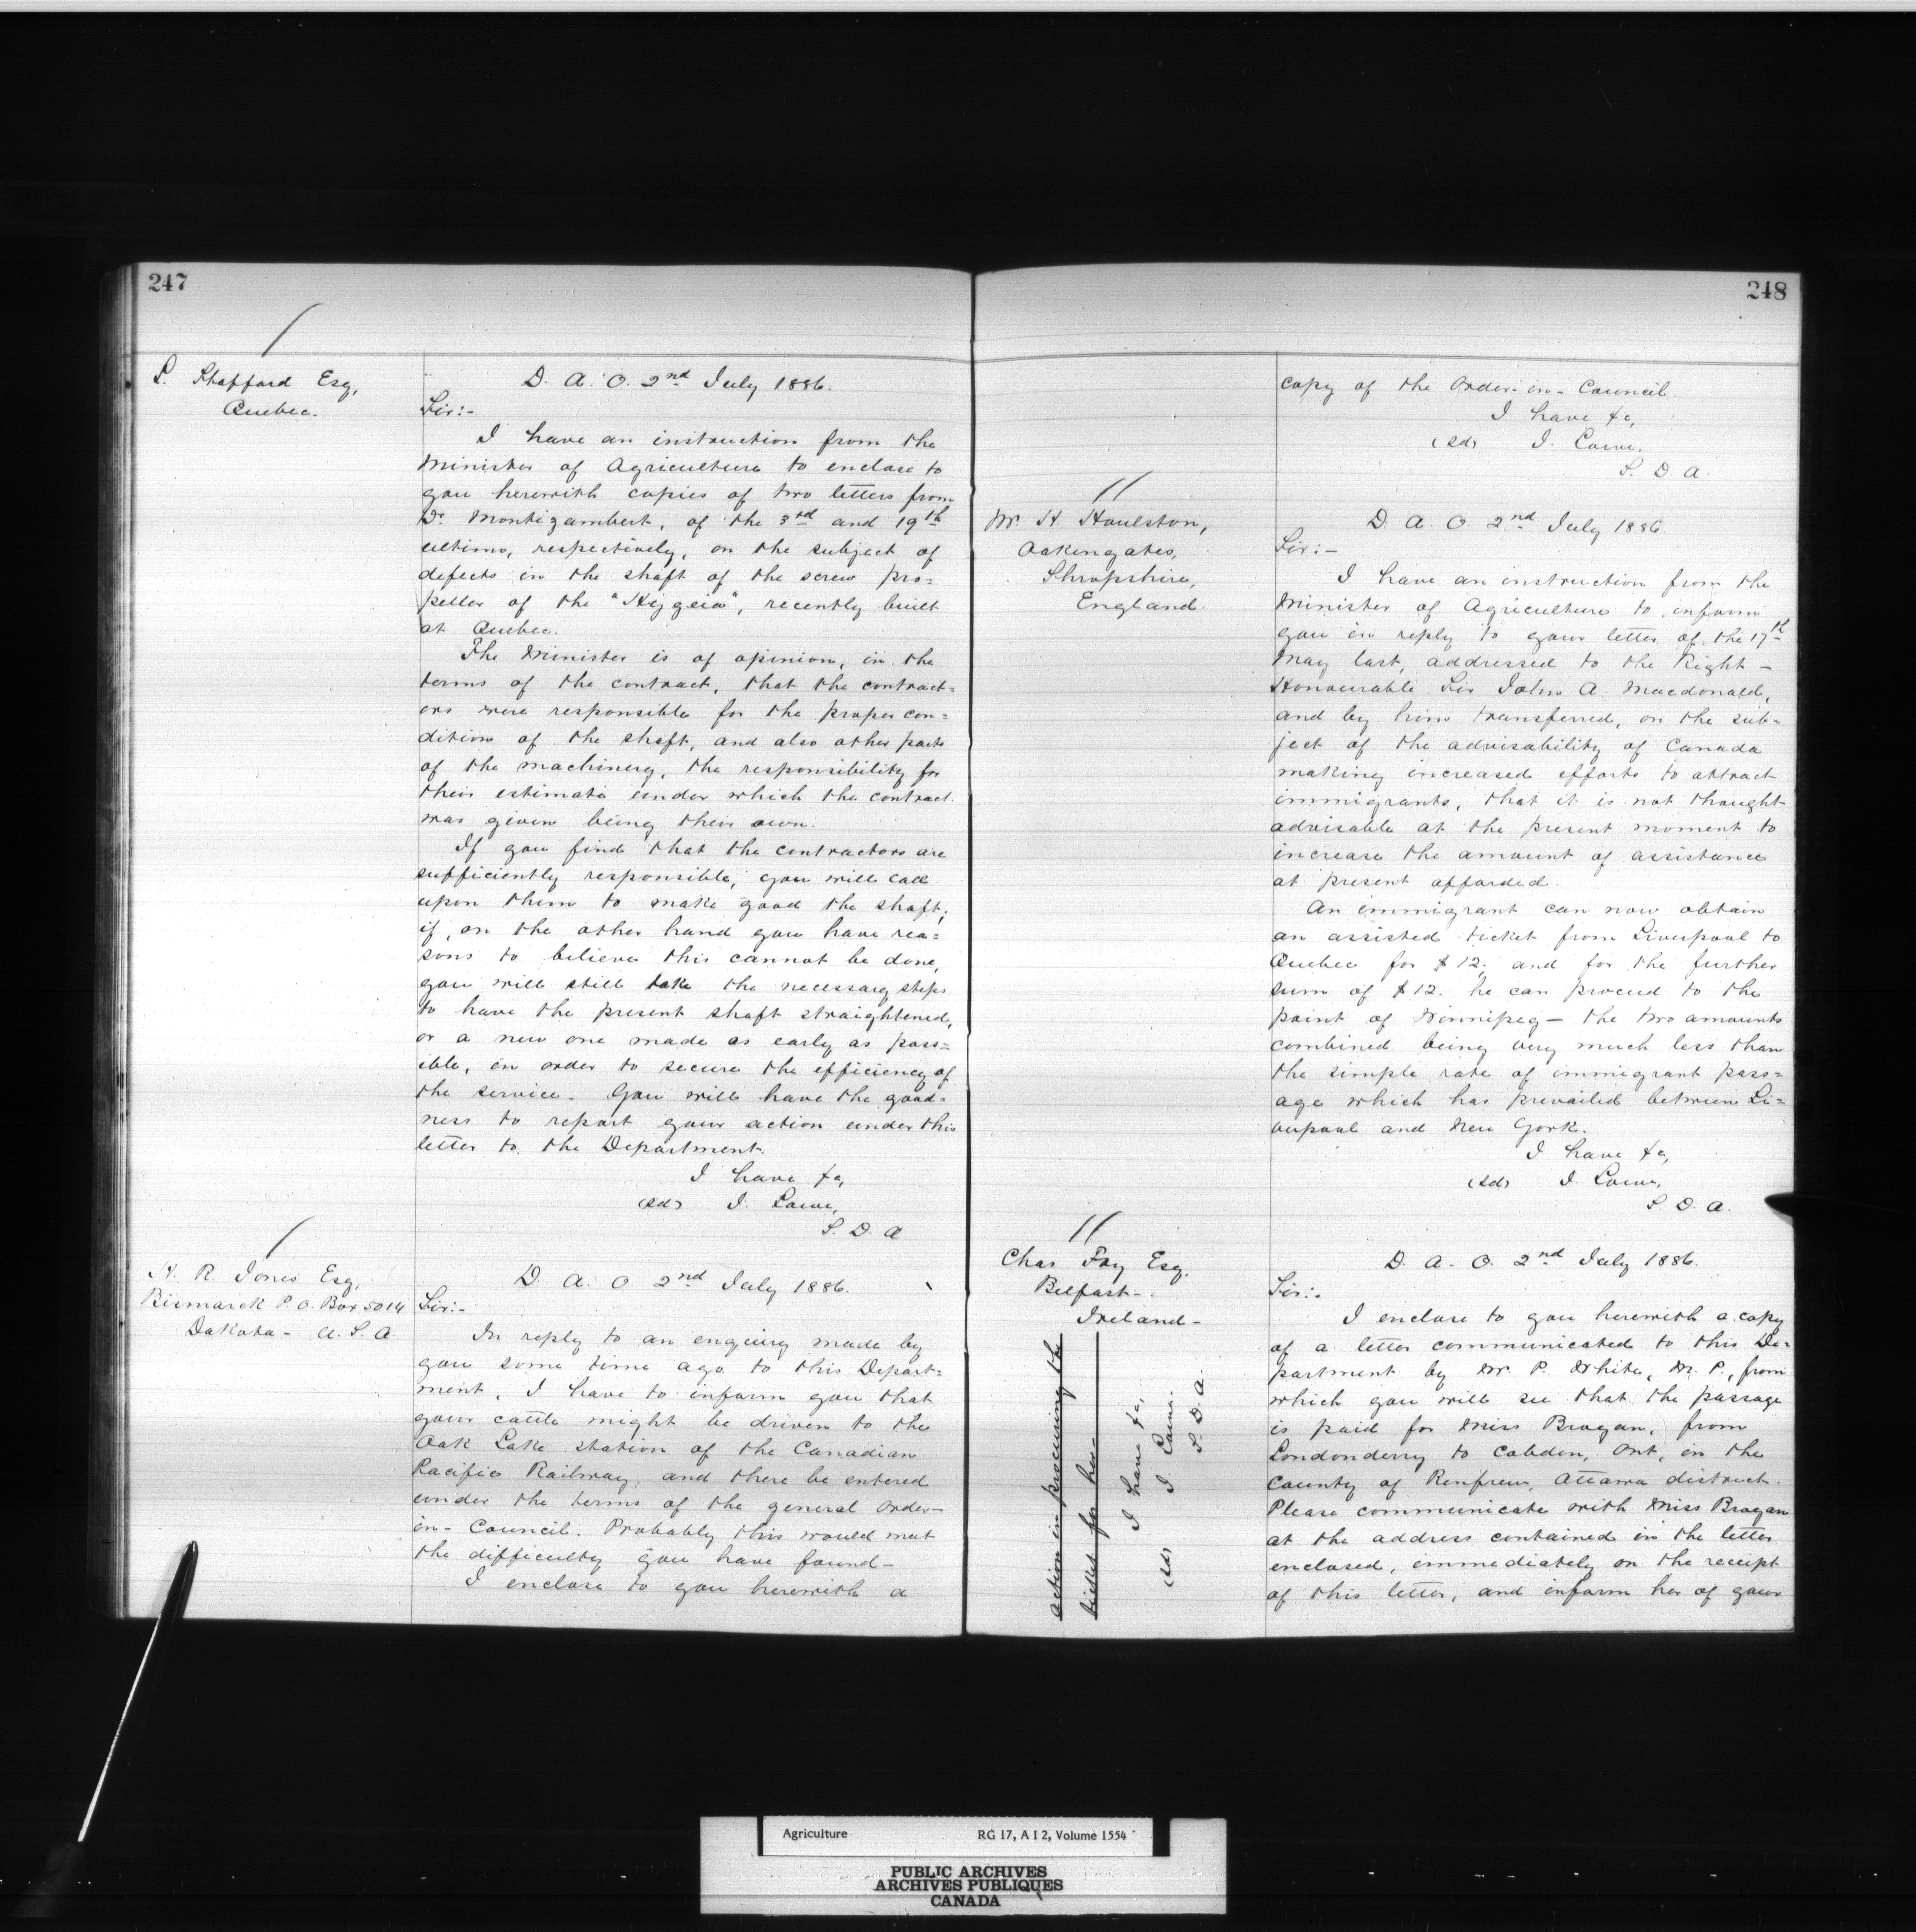 247
L. Stafford Esq,
Quebec.
D. A. O. 2nd July 1886.
Sir:-
I have an instruction from the
Minister of Agriculture to enclose to
you herewith copies of two letters from
Dr Montizambert, of the 3rd and 19th
ultimo, respectively, on the subject of
defects in the shaft of the screw pro=
peller of the "Hygeia", recently built
at Quebec.
The Minister is of opinion, in the
terms of the contract, that the contract=
ors were responsible for the proper con=
dition of the shaft, and also other parts
of the machinery, the responsibility for
their estimate under which the contract
was given being their own.
If you find that the contractors are
sufficiently responsible, you will call
upon them to make good the shaft;
if, on the other hand you have rea=
sons to believe this cannot be done,
you will still take the necessary steps
to have the present shaft straightened,
or a new one made as early as poss=
ible, in order to secure the efficiency of
the service. You will have the good=
ness to report your action under this
letter to the Department.
I have &c,
(sd) J. Lowe,
S. D. A
H. R. Jones Esq,
Bismarck P.O. Box 5014
Dakota - U. S. A
D. A. O 2nd July 1886.
Sir:-
In reply to an enquiry made by
you some time ago to this Depart=
ment, I have to inform you that
your cattle might be driven to the
Oak Lake station of the Canadian
Pacific Railway, and there be entered
under the terms of the general Order-
in-Council. Probably this would meet
the difficulty you have found -
I enclose to you herewith a
248
copy of the Order-in-Council.
I have &c,
(sd) J. Lowe,
S. D. A.
Mr. H Houlston,
Oakengates,
Shropshire,
England.
D. A. O. 2nd July 1886
Sir:-
I have an instruction from the
Minister of Agriculture to inform
you in reply to your letter of the 17th
May last, addressed to the Right -
Honourable Sir John A. Macdonald,
and by him transferred, on the sub=
ject of the advisability of Canada
making increased efforts to attract
immigrants, that it is not thought
advisable at the present moment to
increase the amount of assistance
at present afforded.
An immigrant can now obtain
an assisted ticket from Liverpool to
Quebec for $12; and for the further
sum of $12. he can proceed to the
point of Winnipeg - the two amounts
combined being very much less than
the simple rate of immigrant pass=
age which has prevailed between Li=
verpool and New York.
I have &c,
(sd) J. Lowe,
S. D. A.
Chas Foy Esq,
Belfast -
Ireland -
D. A. O. 2nd July 1886.
Sir:-
I enclose to you herewith a copy
of a letter communicated to this De=
partment by Mr. P. White, M. P., from
which you will see that the passage
is paid for Miss Brogan, from
Londonderry to Cobden, Ont, in the
County of Renfrew, Ottawa district.
Please communicate with Miss Brogan
at the address contained in the letter
enclosed, immediately on the receipt
of this letter, and inform her of your
action in procuring the
ticket for her -
I have &c,
(sd) J. Lowe.
S. D. A.
Agriculture RG 17, A I 2, Volume 1554
PUBLIC ARCHIVES
ARCHIVES PUBLIQUES
CANADA